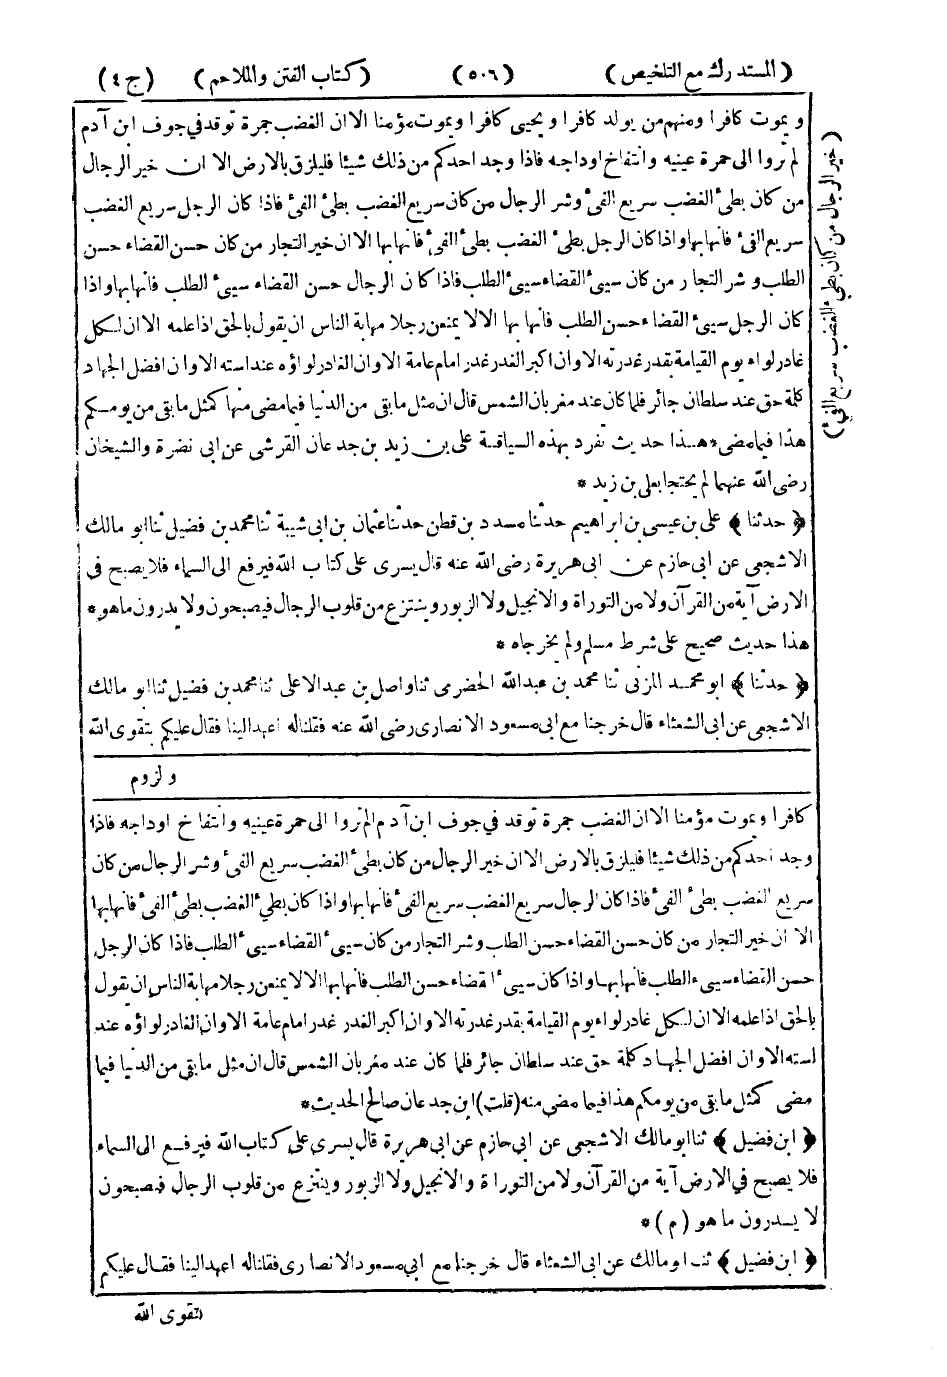 (المستدرك مع التلخيص) (٥٠٦) (كتاب الفتن والملاحم) (ج ٤)
ويموت كافرا ومنهم من يولد كافرا ويحيى كافرا ويموت مؤمنا الا ان الغضب جمرة توقد في جوف ابن آدم
لم تروا الى حمرة عينيه وانتفاخ اوداجه فاذا وجد احدكم من ذلك شيئا فليلزق بالارض الا ان خير الرجال
من كان بطئ الغضب سريع الفئ وشر الرجال من كان سريع الغضب بطئ الفئ فاذا كان الرجل سريع الغضب
سريع الفئ فانها بها واذا كان الرجل بطئ الغضب بطئ الفئ فانها بها الا ان خير التجار من كان حسن القضاء حسن
الطلب وشر التجار من كان سيئ القضاء سيئ الطلب فاذا كان الرجال حسن القضاء سيئ الطلب فانها بها واذا
كان الرجل سيئ القضاء حسن الطلب فانها بها الا لا يمنعن رجلا مهابة الناس ان يقول بالحق اذا علمه الا ان لكل
غادر لواء يوم القيامة بقدر غدرته الا وان اكبر الغدر غدر امام عامة الا وان الغادر لواؤه عند استه الا وان افضل الجهاد
كلمة حق عند سلطان جائر فلما كان عند مغربان الشمس قال ان مثل ما بقى من الدنيا فيما مضى منها كمثل ما بقى من يومكم
هذا فيما مضى * هذا حديث تفرد بهذه السياقة على بن زيد بن جدعان القرشى عن ابى نضرة والشيخان
رضى الله عنهما لم يحتجا بعلى بن زيد *
﴿ حدثنا ﴾ على بن عيسى بن ابراهيم حدثنا مسدد بن قطن حدثنا عثمان بن ابى شيبة ثنا محمد بن فضيل ثنا ابو مالك
الاشجعى عن ابى حازم عن ابى هريرة رضى الله عنه قال يسرى على كتاب الله فيرفع الى السماء فلا يصبح فى
الارض آية من القرآن ولا من التوراة والانجيل ولا الزبور وينتزع من قلوب الرجال فيصبحون ولا يدرون ما هو *
هذا حديث صحيح على شرط مسلم ولم يخرجاه *
﴿ حدثنا ﴾ ابو محمد المزنى ثنا محمد بن عبدالله الحضرمى ثنا واصل بن عبد الاعلى ثنا محمد بن فضيل ثنا ابو مالك
الاشجعى عن ابى الشعثاء قال خرجنا مع ابى مسعود الانصارى رضى الله عنه فقلنا له اعهد الينا فقال عليكم بتقوى الله
ولزوم
(خير الرجال من كان بطئ الغضب سريع الفئ)
كافرا ويموت مؤمنا الا ان الغضب جمرة توقد في جوف ابن آدم الم تروا الى حمرة عينيه وانتفاخ اوداجه فاذا
وجد احدكم من ذلك شيئا فليلزق بالارض الا ان خير الرجال من كان بطئ الغضب سريع الفئ وشر الرجال من كان
سريع الغضب بطئ الفئ فاذا كان الرجال سريع الغضب سريع الفئ فانها بها واذا كان بطئ الغضب بطئ الفئ فانها بها
الا ان خير التجار من كان حسن القضاء حسن الطلب وشر التجار من كان سيئ القضاء سيئ الطلب فاذا كان الرجل
حسن القضاء سيئ الطلب فانها بها واذا كان سيئ القضاء حسن الطلب فانها بها الا لا يمنعن رجلا مهابة الناس ان يقول
بالحق اذا علمه الا ان لكل غادر لواء يوم القيامة بقدر غدرته الا وان اكبر الغدر غدر امام عامة الا وان الغادر لواؤه عند
استه الا وان افضل الجهاد كلمة حق عند سلطان جائر فلما كان عند مغربان الشمس قال ان مثل ما بقى من الدنيا فيما
مضى كمثل ما بقى من يومكم هذا فيما مضى منه (قلت) ابن جدعان صالح الحديث *
﴿ ابن فضيل ﴾ ثنا ابو مالك الاشجعى عن ابى حازم عن ابى هريرة قال يسرى على كتاب الله فيرفع الى السماء
فلا يصبح في الارض آية من القرآن ولا من التوراة والانجيل ولا الزبور وينتزع من قلوب الرجال فيصبحون
لا يدرون ما هو (م) *
﴿ ابن فضيل ﴾ ثنا ابو مالك عن ابى الشعثاء قال خرجنا مع ابي مسعود الانصارى فقلنا له اعهد الينا فقال عليكم
بتقوى الله